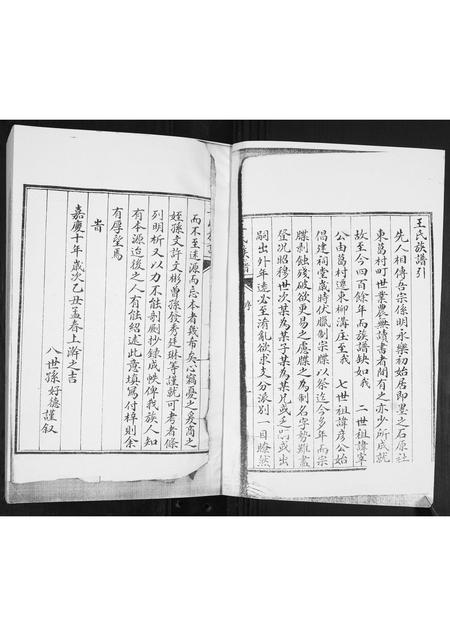 王氏族譜引
先人相傳吾宗係明永樂初始居即墨之石原社
東葛村町世業農無讀書者間有之亦少所成就
故至今四百餘年而族譜缺如我 二世祖諱寧
公由葛村遷東柳溝庄至我 七世祖諱彥公始
倡建祠堂歲時伏臘制宗牒以祭迄今多年而宗
牒剝蝕殘破欲更易之慮牒之為制名字勢難盡
登况昭穆世次某為某子某為某兄或乏嗣或出
嗣出外年遠必至淆亂欲求支分派別一目瞭然
王氏族譜
而不至迷源而忘本者幾希矣心竊憂之爰商之
姪孫文許文彬曾孫發秀廷琳等謹就可考者條
列明析又以力不能剞劂抄錄成帙俾我族人知
有本源迨後之人有能紹述此意填寫付梓則余
有厚望焉
旹
嘉慶十年歲次乙丑孟春上澣之吉
八世孫好德謹叙